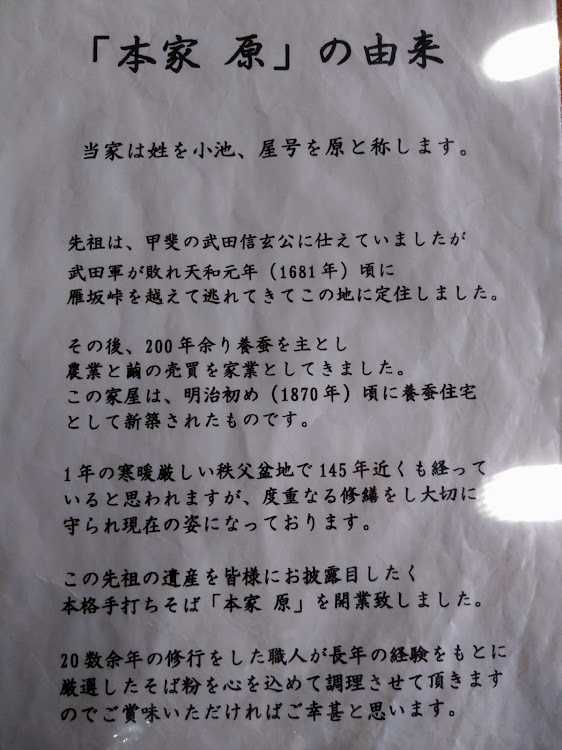 「本家 原」の由来
当家は姓を小池、屋号を原と称します。
先祖は、甲斐の武田信玄公に仕えていましたが
武田軍が敗れ天和元年（1681年）頃に
雁坂峠を越えて逃れてきてこの地に定住しました。
その後、200年余り養蚕を主とし
農業と繭の売買を家業としてきました。
この家屋は、明治初め（1870年）頃に養蚕住宅
として新築されたものです。
1年の寒暖厳しい秩父盆地で145年近くも経って
いると思われますが、度重なる修繕をし大切に
守られ現在の姿になっております。
この先祖の遺産を皆様にお披露目したく
本格手打ちそば「本家 原」を開業致しました。
20数余年の修行をした職人が長年の経験をもとに
厳選したそば粉を心を込めて調理させて頂きます
のでご賞味いただければご幸甚と思います。